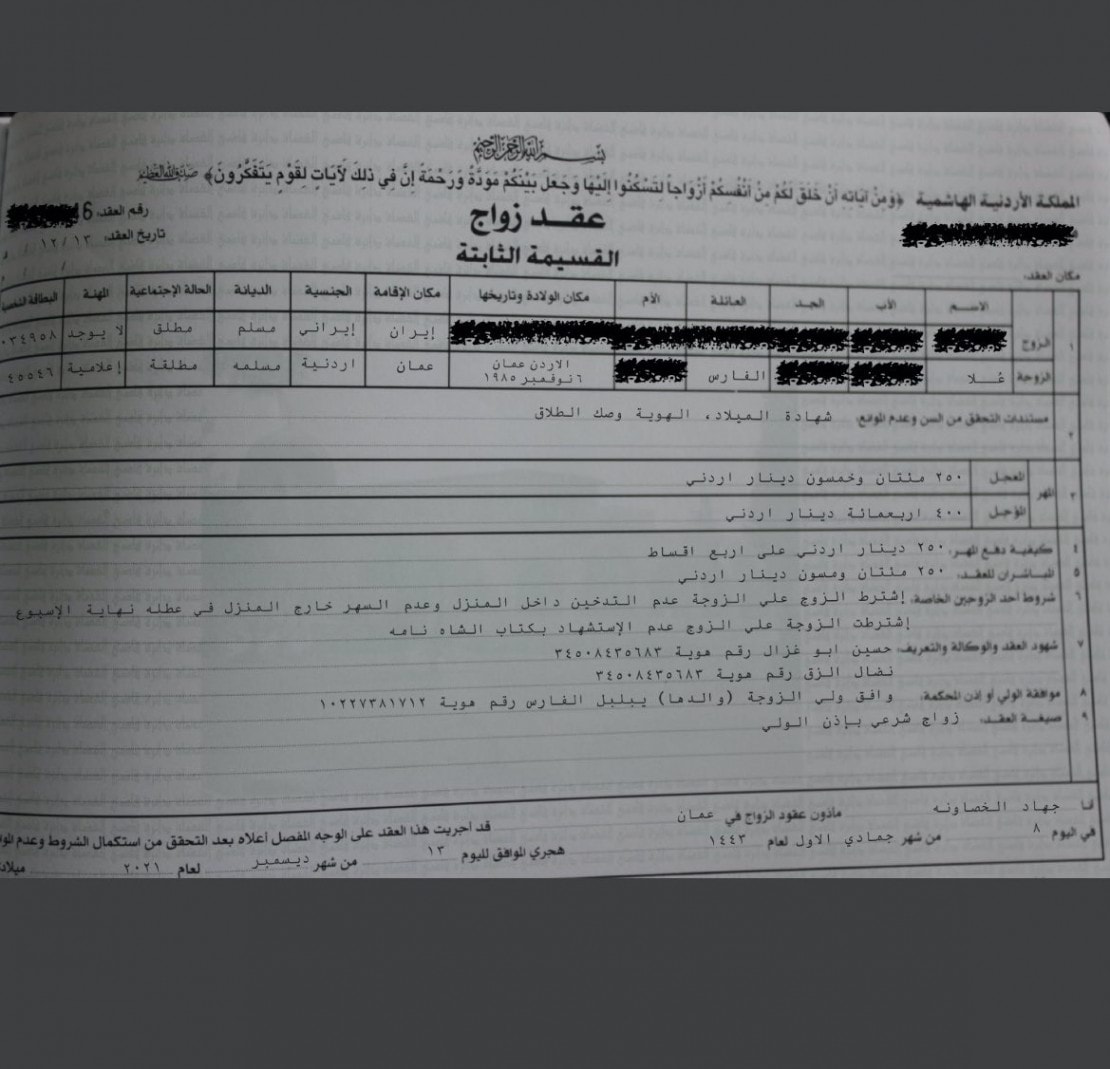 بسم الله الرحمن الرحيم
المملكة الأردنية الهاشمية ﴿وَمِنْ آيَاتِهِ أَنْ خَلَقَ لَكُمْ مِنْ أَنْفُسِكُمْ أَزْوَاجاً لِتَسْكُنُوا إِلَيْهَا وَجَعَلَ بَيْنَكُمْ مَوَدَّةً وَرَحْمَةً إِنَّ فِي ذَلِكَ لَآيَاتٍ لِقَوْمٍ يَتَفَكَّرُونَ﴾ صدق الله العظيم
عقد زواج
رقم العقد: 6
القسيمة الثابتة
تاريخ العقد: ١٣ / ١٢ /
مكان العقد:
الاسم الأب الجد العائلة الأم مكان الولادة وتاريخها مكان الإقامة الجنسية الديانة الحالة الإجتماعية المهنة البطاقة الشخصية
١ الزوج إيران إيراني مسلم مطلق لا يوجد ٠٣٤٩٥٨
الزوجة عُـلا الفارس الاردن عمان ٦ نوفمبر ١٩٨٥ عمان اردنية مسلمه مطلقة إعلامية ٤٥٥٤٦
٢ مستندات التحقق من السن وعدم الموانع: شهادة الميلاد، الهوية وصك الطلاق
٣ المهر المعجل ٢٥٠ مئتان وخمسون دينار اردني
المؤجل ٤٠٠ اربعمائة دينار اردني
٤ كيفية دفع المهر: ٢٥٠ دينار اردني على اربع اقساط
٥ المباشران للعقد: ٢٥٠ مئتان ومسون دينار اردني
٦ شروط أحد الزوجين الخاصة: إشترط الزوج علي الزوجة عدم التدخين داخل المنزل وعدم السهر خارج المنزل في عطله نهاية الإسبوع
إشترطت الزوجة علي الزوج عدم الإستشهاد بكتاب الشاه نامه
٧ شهود العقد والوكالة والتعريف: حسين ابو غزال رقم هوية ٣٤٥٠٨٤٣٥٦٨٣
نضال الزق رقم هوية ٣٤٥٠٨٤٣٥٦٨٣
٨ موافقة الولي أو إذن المحكمة: وافق ولي الزوجة (والدها) يبلبل الفارس رقم هوية ١٠٢٢٧٣٨١٧١٢
٩ صيغة العقد: زواج شرعي بإذن الولي
أنا جهاد الخصاونه مأذون عقود الزواج في عمان قد أجريت هذا العقد على الوجه المفصل أعلاه بعد التحقق من استكمال الشروط وعدم
في اليوم ٨ من شهر جمادي الاول لعام ١٤٤٣ هجري الموافق لليوم ١٣ من شهر ديسمبر لعام ٢٠٢١